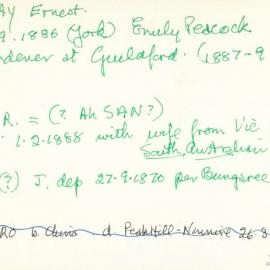 AY Ernest.
9. 1886 (York) Emily Peacock
dener at Guildford. (1887-9
R. = (? Ah SAN?)
1.2.1988 with wife from Vic
South Australian
(?) J. dep 27.9.1870 per Bungaree
RO b. China d Peak Hill-Nannine 26.8